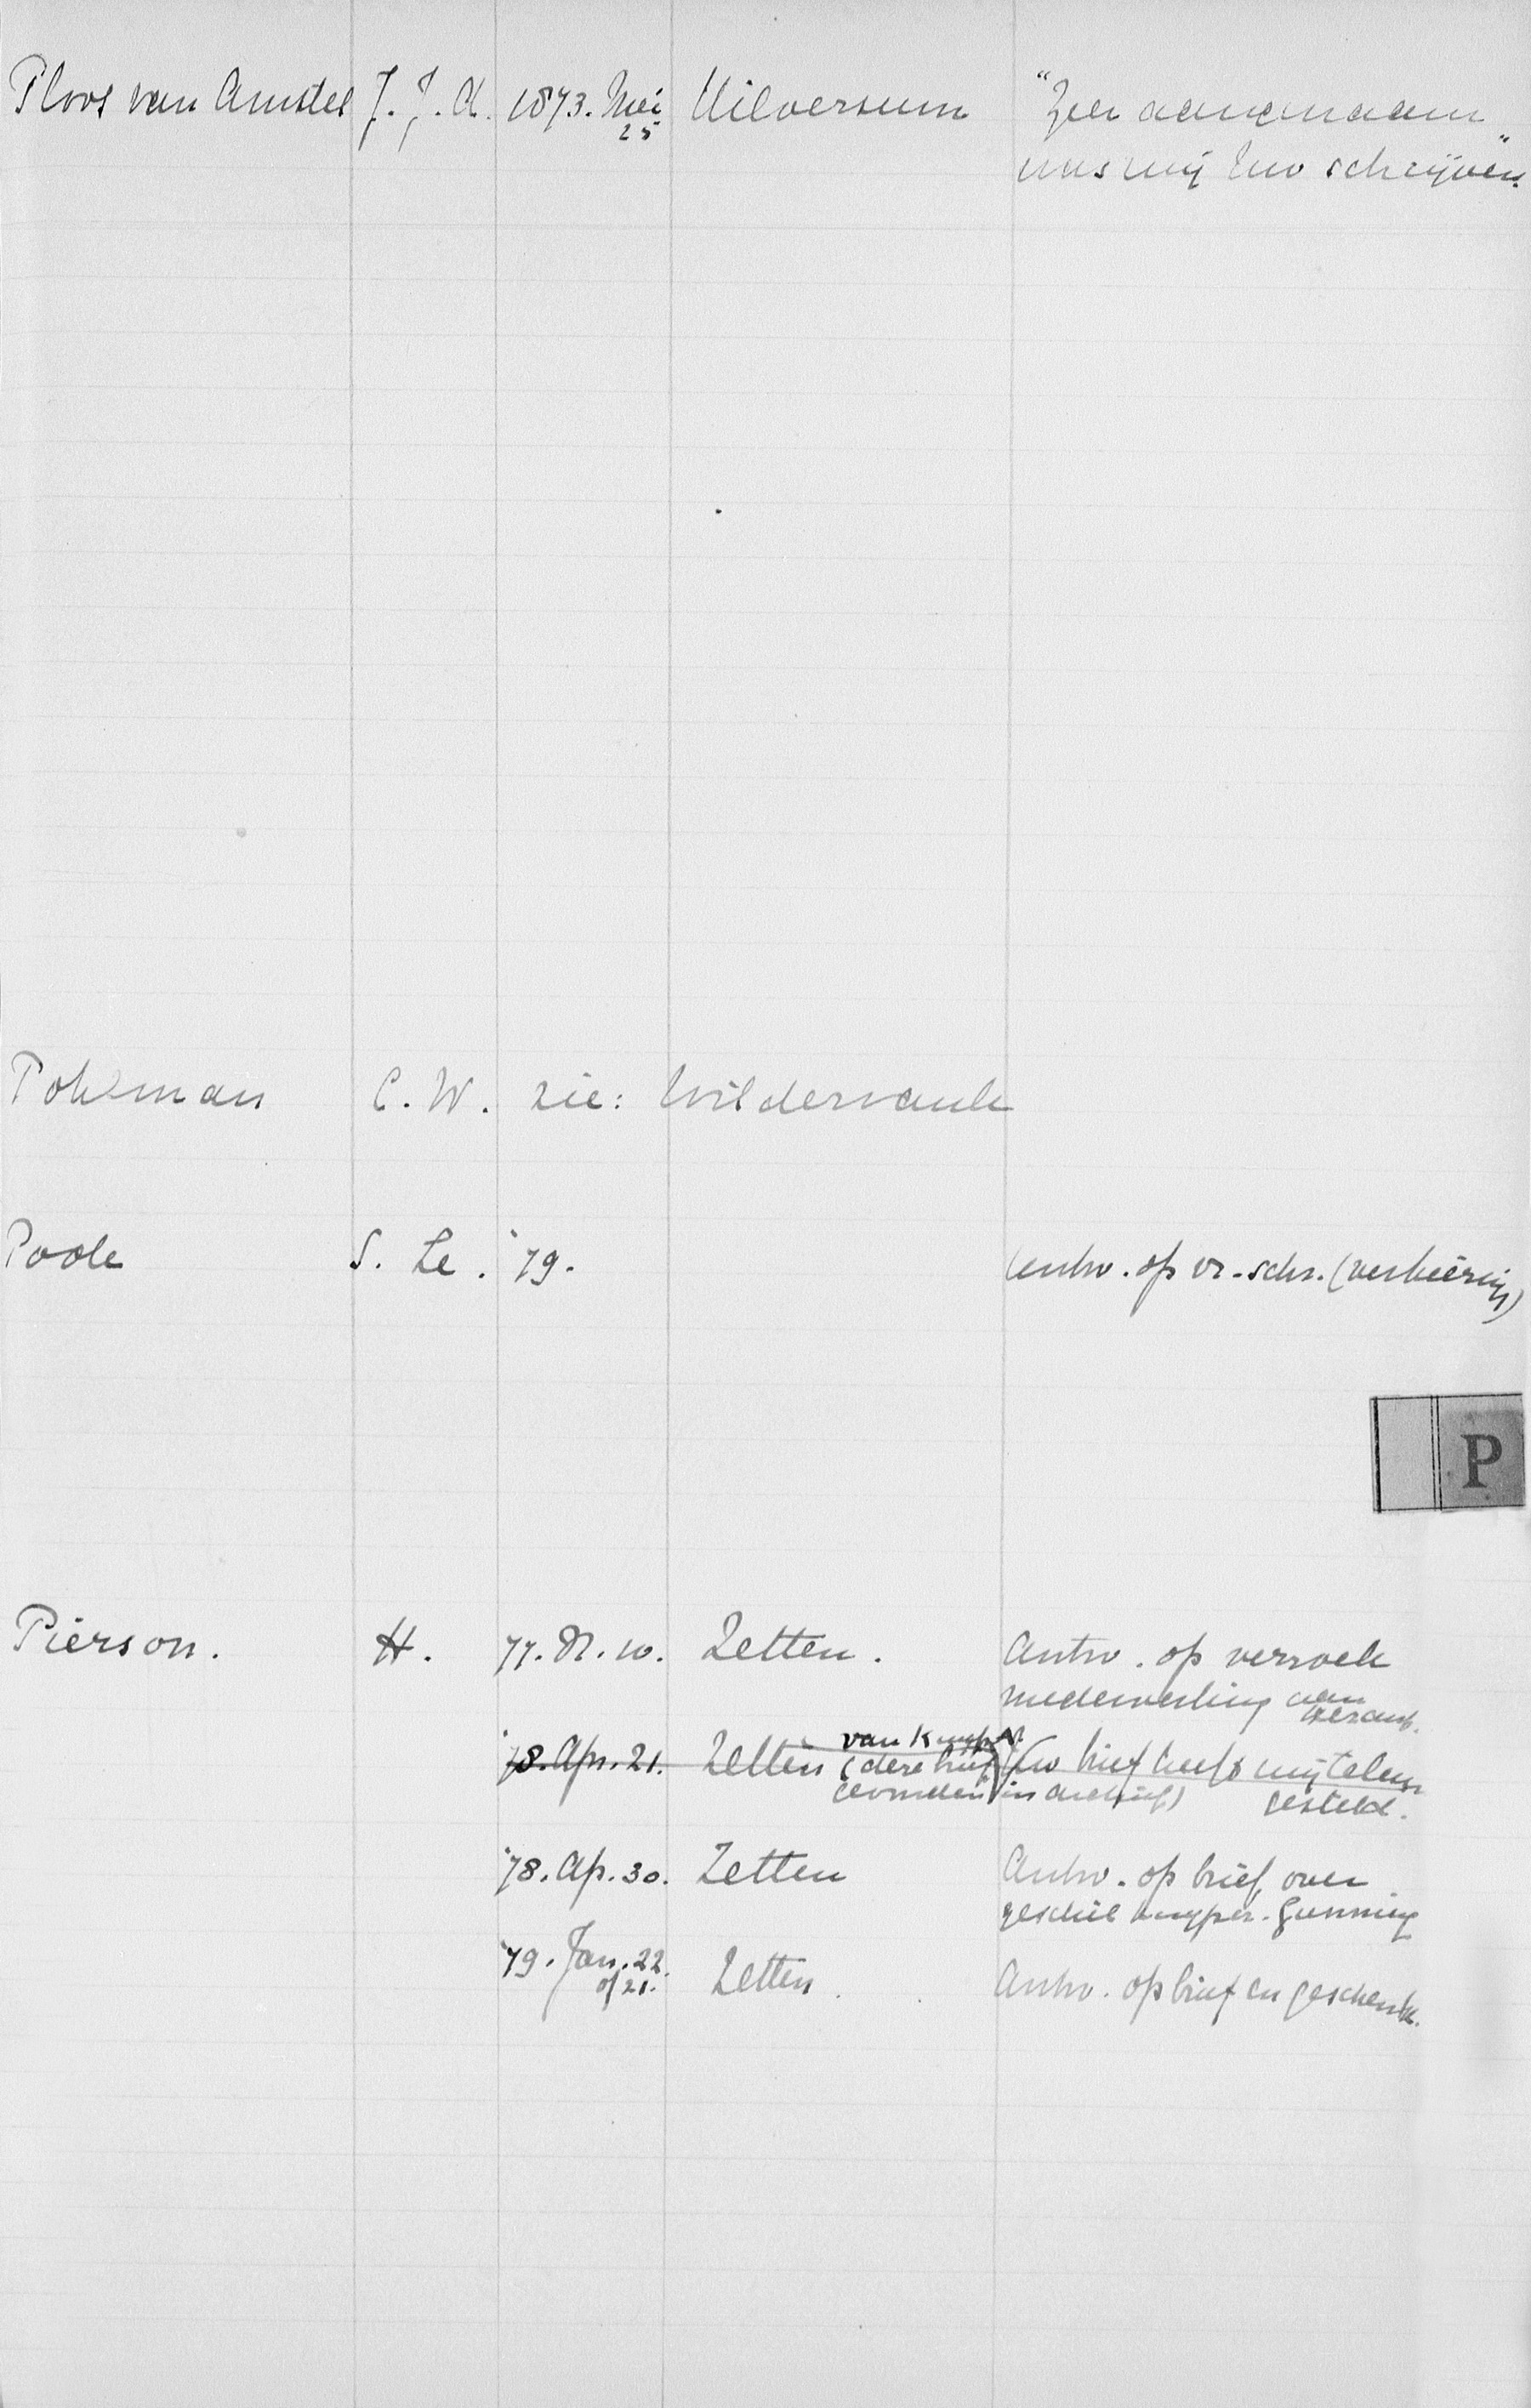 Ploos van Amstel J. J. A. 1873. Mei 25 Hilversum "Zeer aangenaam
was mij Uw schrijven."
Pohlman C. W. zie: Wildervank
Poole S. Le. '79. Antw. op vr. schr.
P
Pierson. H. 77. N. 10. Zetten. Antw. op verzoek
medewerking aan
Heraut.
'78. Apr. 21. Zetten (deze brief Uw brief heeft mij teleur
van Kuyper
gevonden in archief) gesteld.
'78. Ap. 30. Zetten Antw. op brief over
geschil Kuyper-Gunning
'79. Jan. 22. Zetten. Antw. op brief en geschenk.
of 21.